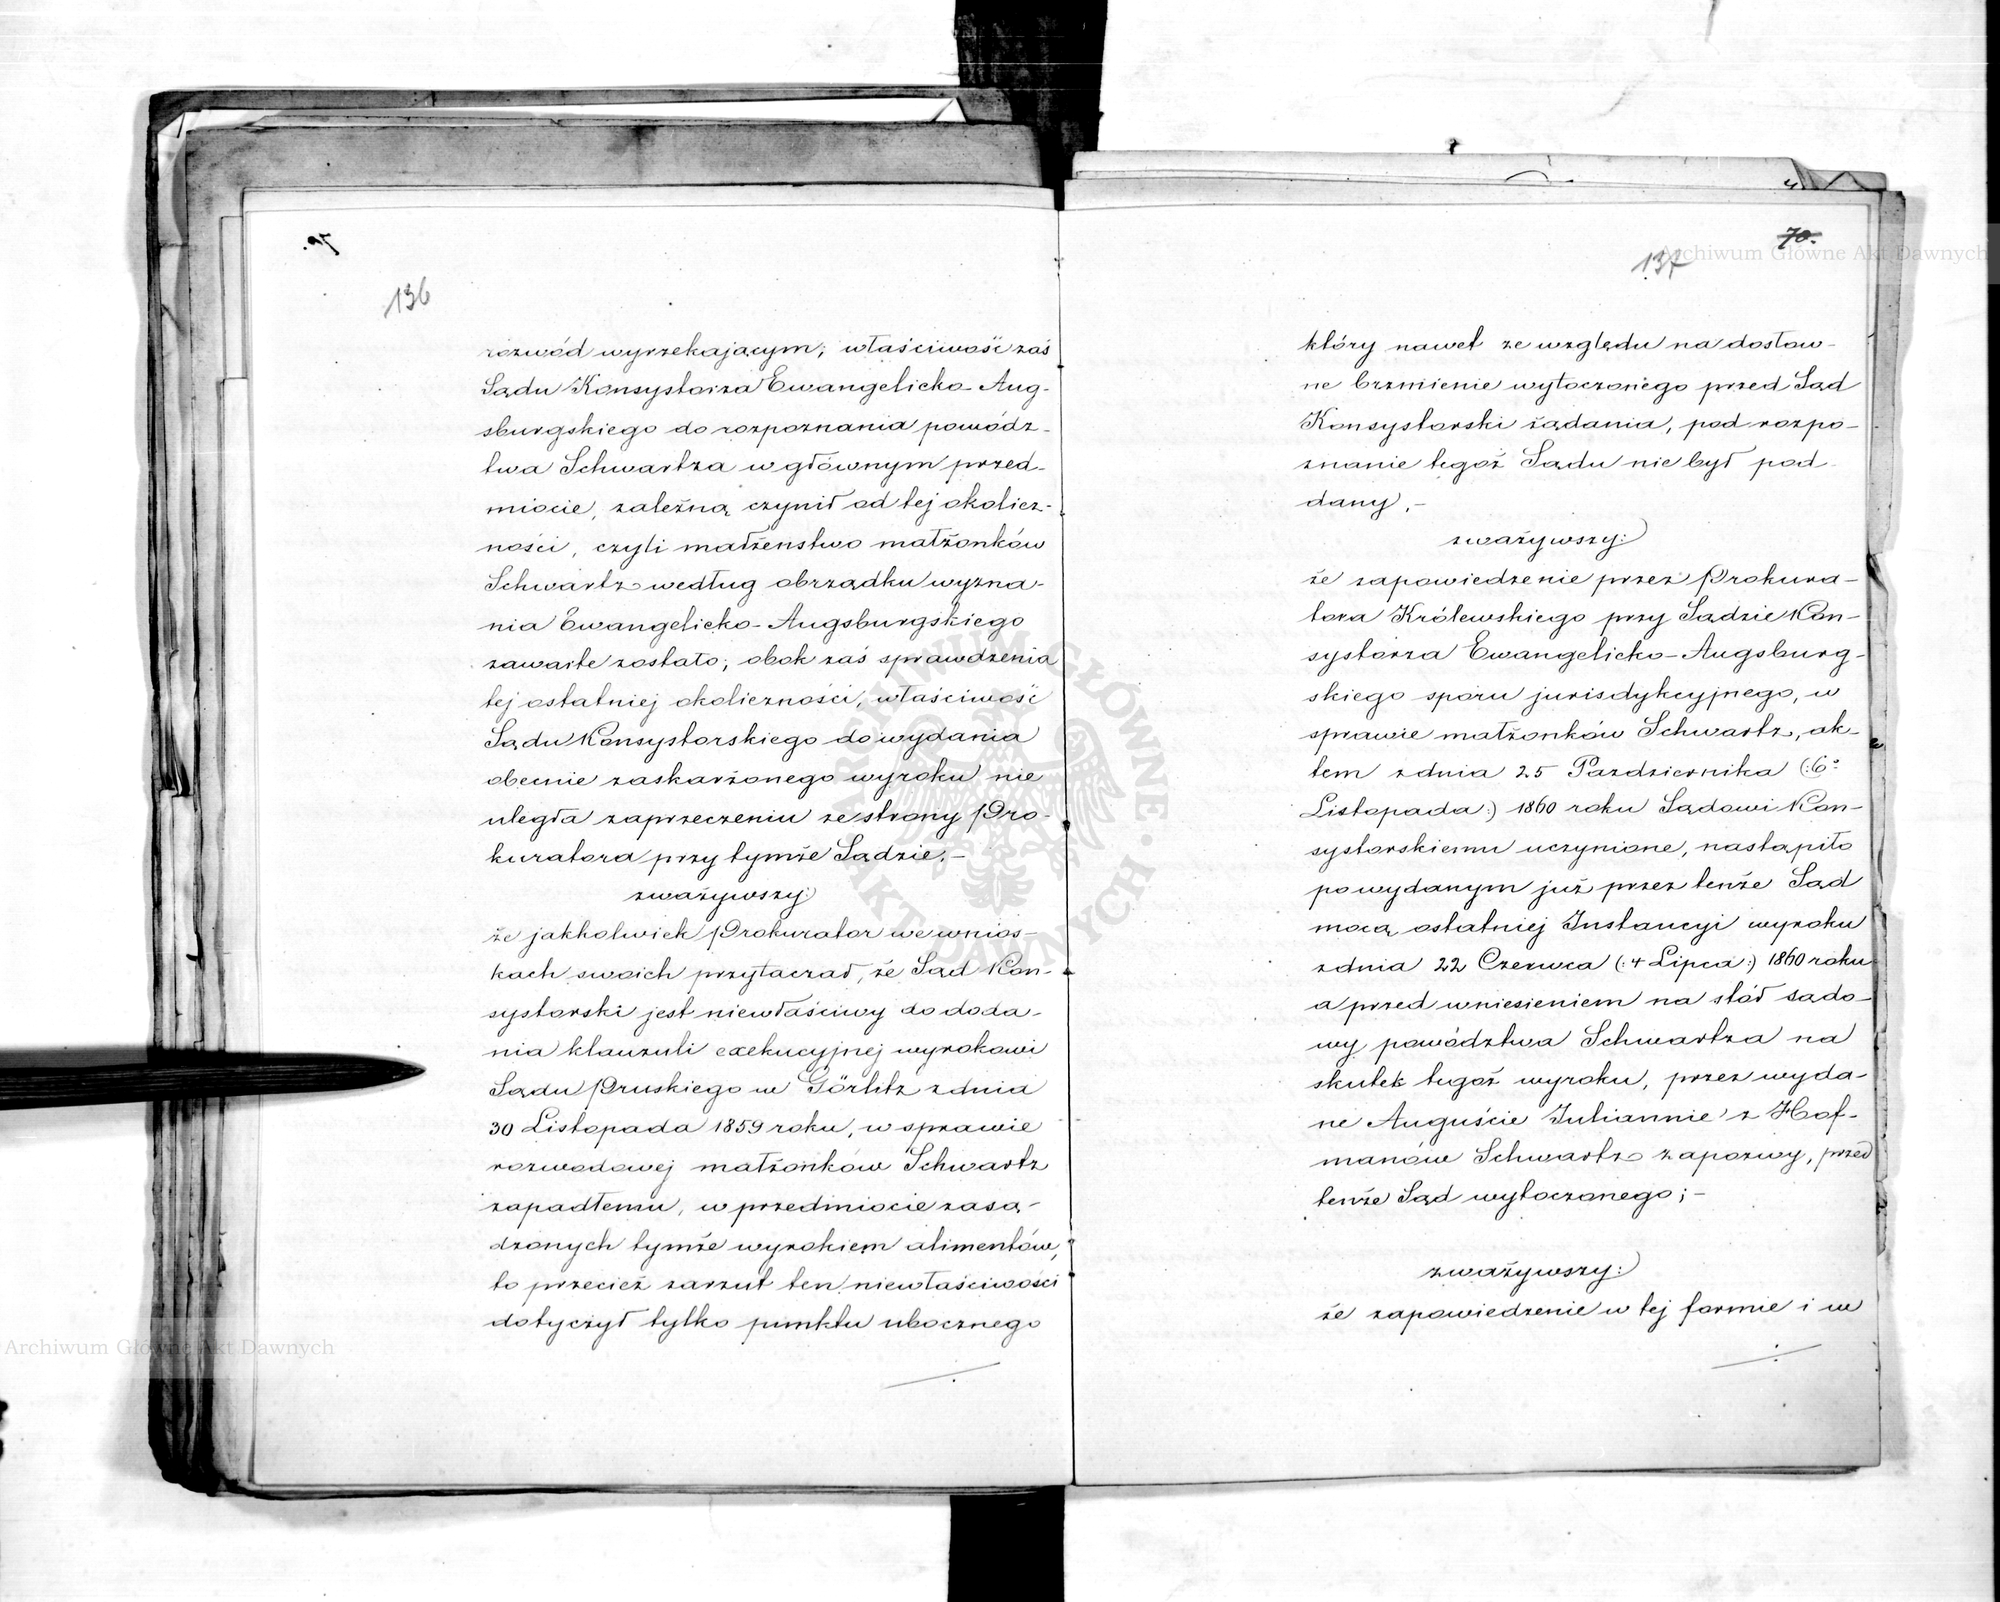 136
rozwód wyrzekającym; właściwość zaś
Sądu Konsystorza Ewangelicko-Aug-
sburgskiego do rozpoznania powódz-
twa Schwartza w głównym przed-
miocie, zależną czynił od tej okolicz-
ności, czyli małżeństwo małżonków
Schwartz według obrządku wyzna-
nia Ewangelicko-Augsburgskiego
zawarte zostało; obok zaś sprawdzenia
tej ostatniej okoliczności, właściwość
Sądu Konsystorskiego do wydania
obecnie zaskarżonego wyroku nie
uległa zaprzeczeniu ze strony Pro-
kuratora przy tymże Sądzie.-
zważywszy:
że jakkolwiek Prokurator we wnios-
kach swoich przytaczał, że Sąd Kon-
systorski jest niewłaściwy do doda-
nia klauzuli exekucyjnej wyrokowi
Sądu Pruskiego w Görlitz z dnia
30 Listopada 1859 roku, w sprawie
rozwodowej małżonków Schwartz
zapadłemu, w przedmiocie zasą-
dzonych tymże wyrokiem alimentów,
to przecież zarzut ten niewłaściwości
dotyczył tylko punktu ubocznego
70.
137
który nawet ze względu na dosłow-
ne brzmienie wytoczonego przed Sąd
Konsystorski żądania, pod rozpo-
znanie tegoż Sądu nie był pod-
dany,-
zważywszy:
że zapowiedzenie przez Prokura-
tora Królewskiego przy Sądzie Kon-
systorza Ewangelicko-Augsburg-
skiego sporu jurisdykcyjnego, w
sprawie małżonków Schwartz, ak-
tem z dnia 25 Pazdziernika (:6º
Listopada:) 1860 roku Sądowi Kon-
systorskiemu uczynione, nastąpiło
po wydanym już przez tenże Sąd
mocą ostatniej Instancyi wyroku
z dnia 22 Czerwca (:4 Lipca:) 1860 roku
a przed wniesieniem na stół sądo-
wy powództwa Schwartza na
skutek tegoż wyroku, przez wyda-
ne Auguście Juliannie z Hof-
manów Schwartz zapozwy, przed
tenże Sąd wytoczonego;-
zważywszy:
że zapowiedzenie w tej formie i w
Archiwum Główne Akt Dawnych
Archiwum Główne Akt Dawnych
ARCHIWUM GŁÓWNE AKT DAWNYCH